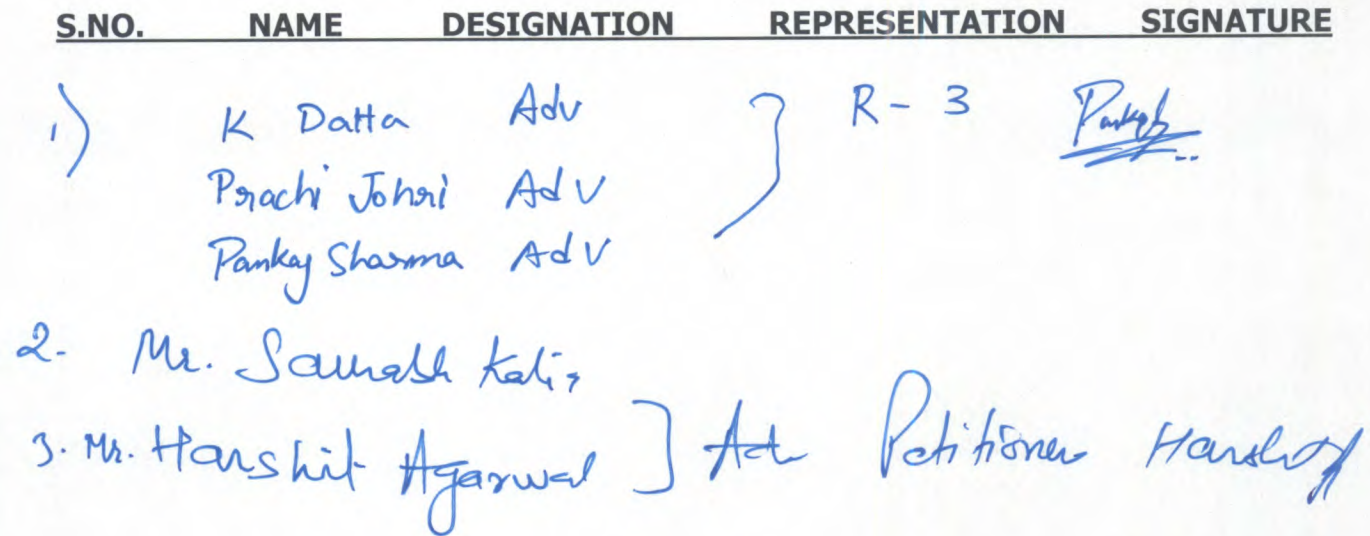 S.NO. NAME DESIGNATION REPRESENTATION SIGNATURE
1) K Datta Adv R - 3 Pankaj
Prachi Johri Adv
Pankaj Sharma Adv
2- Mr. Saurabh Kalia
3. Mr. Harshit Agarwal Adv Petitioner Harshit